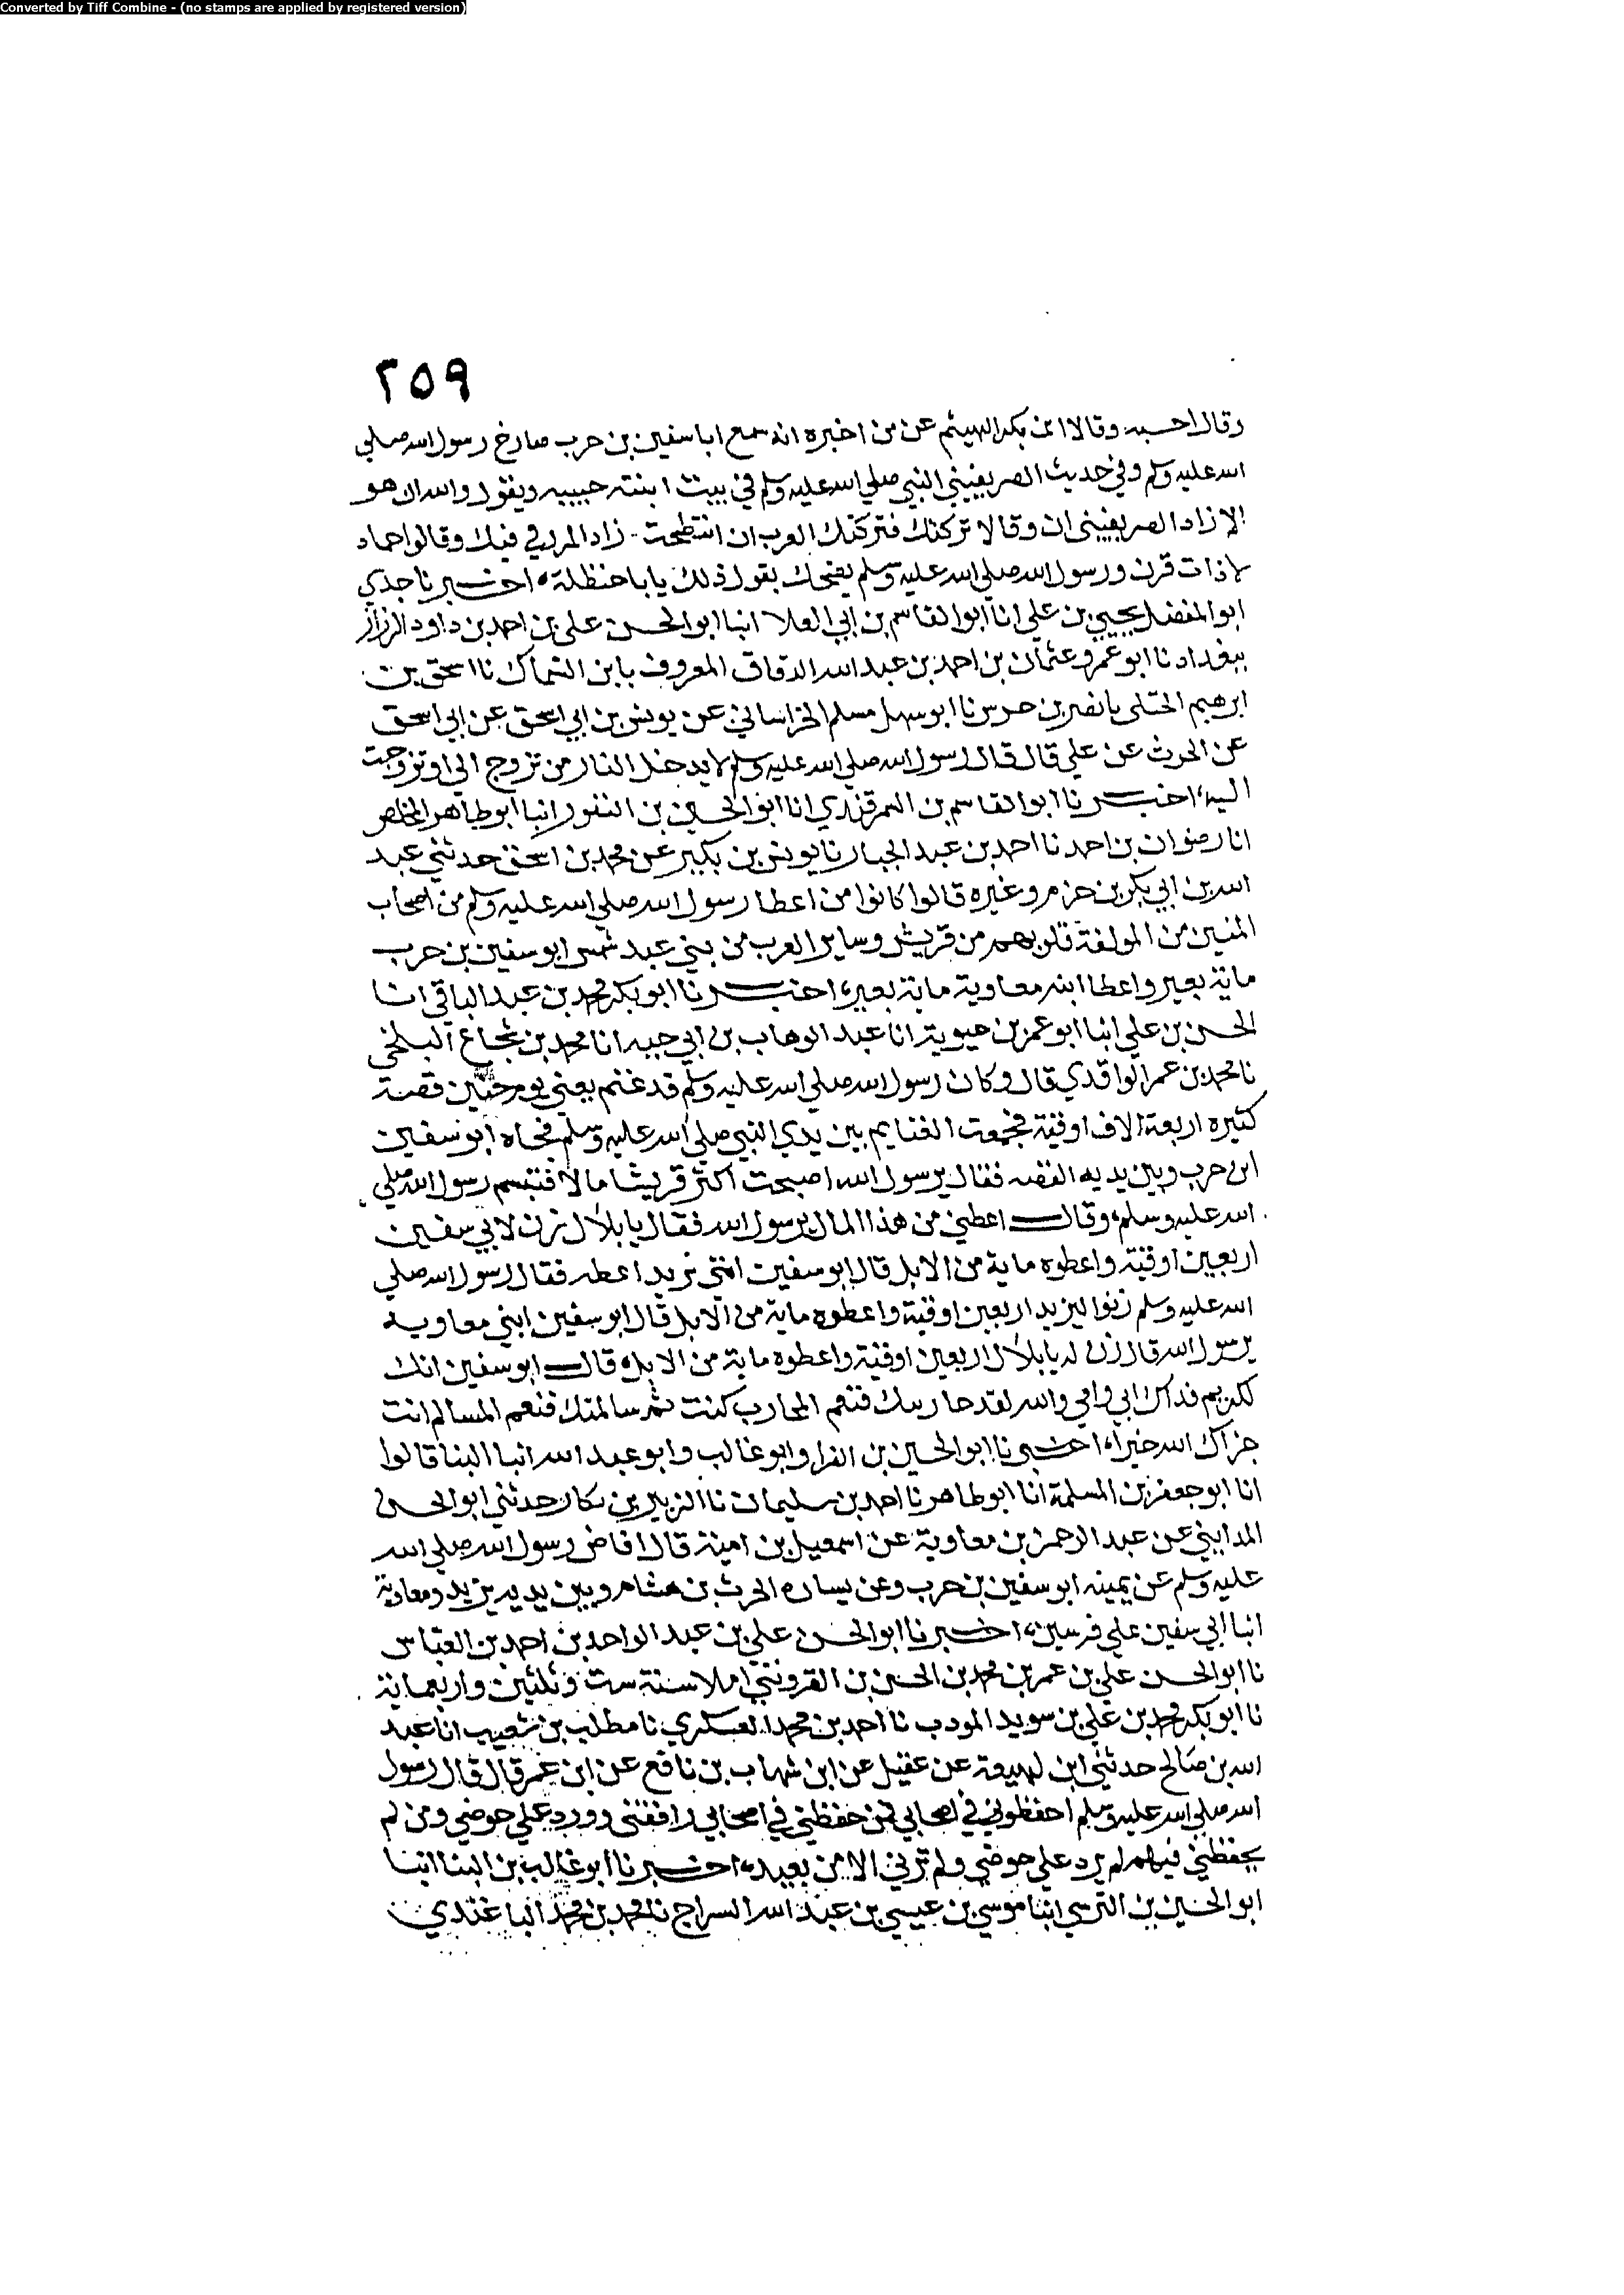 Converted by Tiff Combine - (no stamps are applied by registered version)
٢٥٩
وقالا ابن بكر الهيثم عن من اخبره انه سمع ابا سفين بن حرب صارخ رسول الله صلي
الله عليه وسلم وفي حديث الصريفيني النبي صلي الله عليه وسلم في بيت ابنته حبيبه ويقول والله ان هو
الا زاد الصريفيني ان وقالا تركتك فتركتك العرب ان انتطحت زاد المزرفي فيك وقالوا جماد
لاذات قرن ورسول الله صلي الله عليه وسلم يضحك يقول ذلك يا با حنظلة اخبرنا جدي
ابو المفضل يحيي بن علي انا ابو القاسم بن ابي العلا انبا ابو الحسن علي بن احمد بن داود الرزاز
ببغداد نا ابو عمرو عثمان بن احمد بن عبد الله الدقاق المعروف بابن السماك نا اسحق بن
ابرهيم الختلي نا نصر بن حرس نا ابو سهل مسلم الخراساني عن يونس بن ابي اسحق عن ابي اسحق
عن الحرث عن علي قال قال رسول الله صلي الله عليه وسلم لا يدخل النار من تزوج الي او تزوجت
اليه اخبرنا ابو القاسم بن السمرقندي انا ابو الحسين بن النقور انبا ابو طاهر المخلص
انا رضوان بن احمد نا احمد بن عبد الجبار نا يونس بن بكير عن محمد بن اسحق حدثني عبد
الله بن ابي بكر بن حزم وغيره قالوا كانوا من اعطا رسول الله صلي الله عليه وسلم من اصحاب
المئين من المولفة قلوبهم من قريش وساير العرب من بني عبد شمس ابو سفين بن حرب
ماية بعير واعطا ابنه معاوية ماية بعير اخبرنا ابو بكر محمد بن عبد الباقي انا
الحسن بن علي انبا ابو عمر بن حيوية انا عبد الوهاب بن ابي حيه انا محمد بن شجاع البلخي
نا محمد بن عمر الواقدي قال وكان رسول الله صلي الله عليه وسلم قد غنم يعني يوم حنين فضة
كثيره اربعة الاف اوقية فجمعت الغنايم بين يدي النبي صلي الله عليه وسلم فجاه ابو سفين
ابن حرب وبين يديه الفضه فقال يرسول الله اصبحت اكثر قريشا مالا فتبسم رسول الله صلي
الله عليه وسلم وقال اعطني من هذا المال يرسول الله فقال يا بلال زن لابي سفين
اربعين اوقية واعطوه ماية من الابل قال ابو سفين ابني يزيد اعطه فقال رسول الله صلي
الله عليه وسلم زنوا ليزيد اربعين اوقية واعطوه ماية من الابل قال ابو سفين ابني معاوية
يرسول الله قال زن له يا بلال اربعين اوقية واعطوه ماية من الابل قال ابو سفين انك
لكريم فداك ابي وامي والله لقد حاربتك فنعم المحارب كنت ثم سالمتك فنعم المسالم انت
جزاك الله خيرا اخبرنا ابو الحسين بن الفرا وابو غالب وابو عبد الله انبا البنا قالوا
انا ابو جعفر بن المسلمة انا ابو طاهر نا احمد بن سليمان نا الزبير بن بكار حدثني ابو الحسن
المدايني عن عبد الرحمن بن معاوية عن اسمعيل بن امية قال افاض رسول الله صلي الله
عليه وسلم عن يمينه ابو سفين بن حرب وعن يساره الحرث بن هشام وبين يديه يزيد ومعاوية
انبا ابي سفين علي فرسين اخبرنا ابو الحسن علي بن عبد الواحد بن احمد بن العباس
نا ابو الحسن علي بن عمر بن محمد بن الحسين بن القزويني املا سنة ست وثلثين واربعماية
نا ابو بكر محمد بن علي بن سويد المودب نا احمد بن محمد العسكري نا مطلب بن شعيب انا عبد
الله بن صالح حدثني ابن لهيعة عن عقيل عن ابن شهاب بن نافع عن ابن عمر قال قال رسول
الله صلي الله عليه وسلم احفظوني في اصحابي فمن حفظني في اصحابي رافقني وورد علي حوضي ومن لم
يحفظني فيهم لم يرد علي حوضي ولم يرني الا من بعيد اخبرنا ابو غالب بن البنا انبا
ابو الحسين بن النرسي انبا موسي بن عيسي بن عبد الله السراج نا محمد بن محمد الباغندي